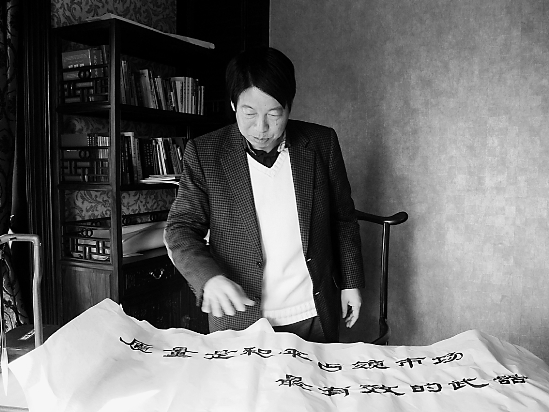 质量是和平占领市场
最有效的武器